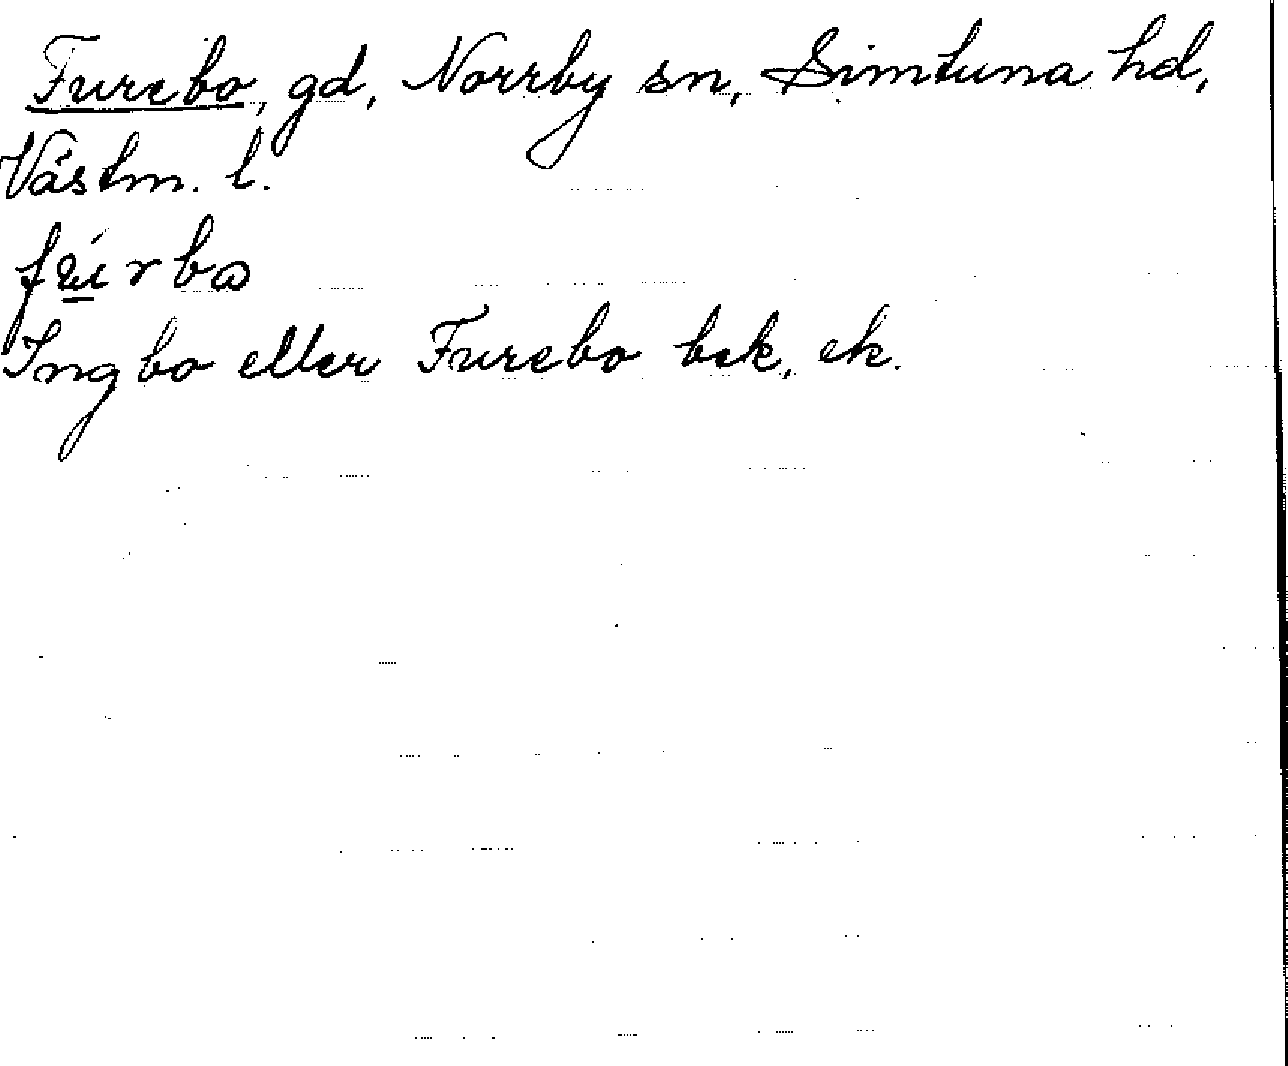 Furebo, gd, Norrby sn, Simtuna hd,
Västm. l.
Ingbo eller Furebo bek, ek.